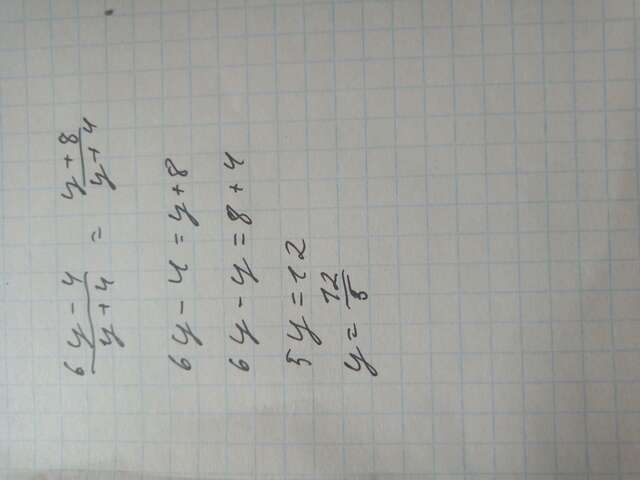 6y - 4 / y + 4 = y + 8 / y + 4
6y - 4 = y + 8
6y - y = 8 + 4
5y = 12
y = 12 / 5